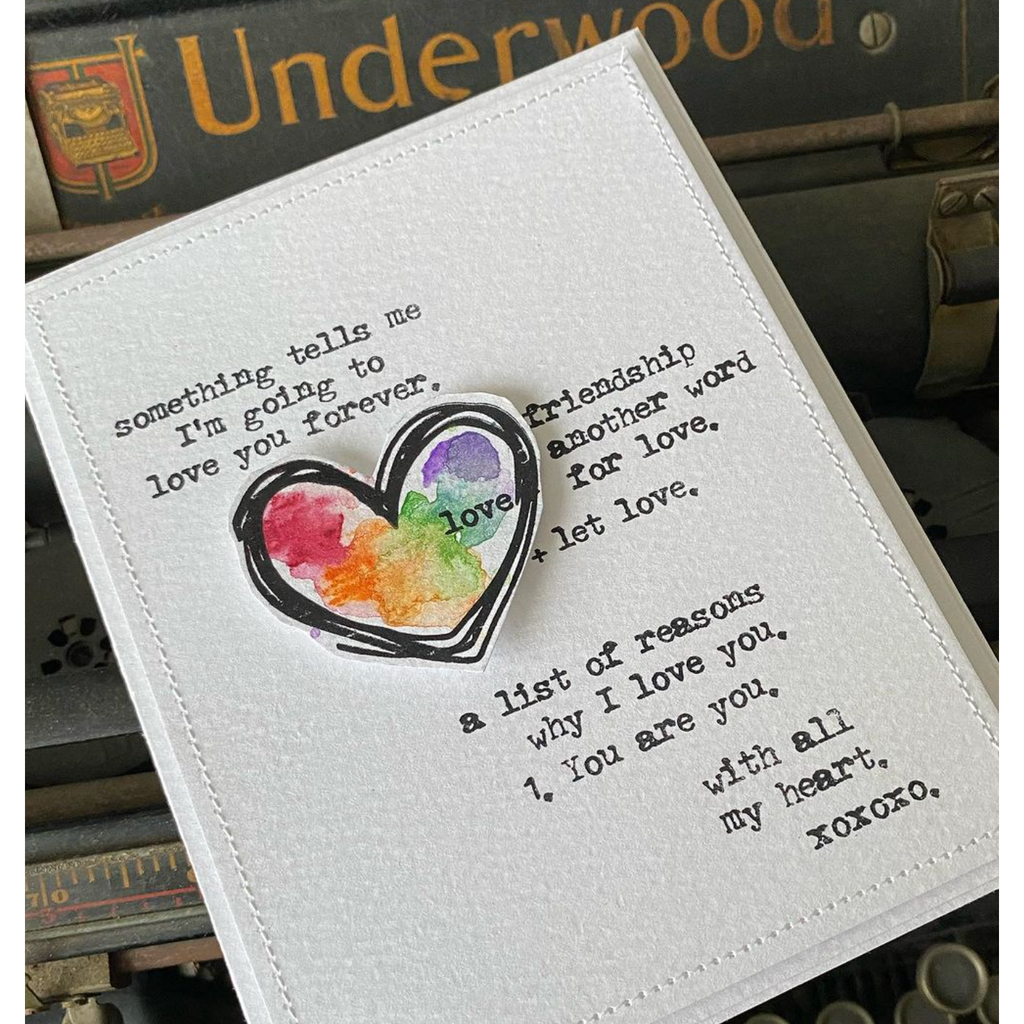 Underwood
something tells me
I'm going to
love you forever.
friendship
another word
for love.
love
+ let love.
a list of reasons
why I love you.
1. You are you.
with all
my heart.
xoxoxo.
70